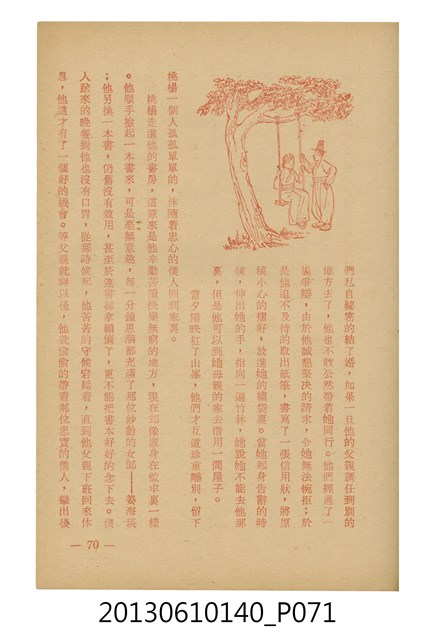 們私自祕密的結了婚，如果一旦他的父親調任到別的
地方去了，他也不敢公然帶着她同行。他們經過了一
番爭辯，由於他誠懇堅決的請求，令她無法婉拒；於
是他迫不及待的取出紙筆，書寫了一張信用狀，將原
稿小心的摺好，放進她的繡袋裏。當她起身告辭的時
候，伸出她的手，指向一遍竹林，她說她不能去他那
裏，但是他可以到她母親的家去借用一間屋子。
當夕陽映紅了山峯，他們才互道珍重離別，留下
桃楊一個人孤孤單單的，伴隨着忠心的僕人回到家裏。
桃楊走進他的書房，這原來是他辛勤苦讀快樂無窮的地方，現在却像置身在監牢裏一樣
。他順手撿起一本書來，可是毫無意趣，每一分鐘思潮都充滿了那位妙齡的女郎——姜海葵
；他另換一本書，仍舊沒有效用，甚至於連書都拿顛倒了，更不能把書本好好的念下去。僕
人送來的晚餐對他也沒有口胃，從那時候起，他苦苦的守候宅隱着，直到他父親下班回來休
息，他這才有了一個好的機會。等父親就寢以後，他就偷偷的帶着那位忠實的僕人，繞出後
— 70 —
20130610140_P071